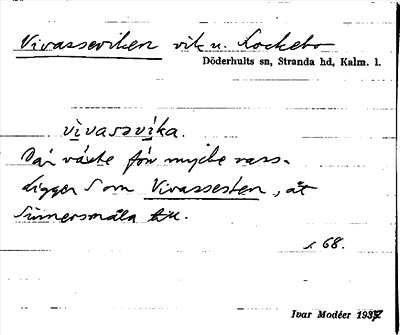 Vivasseviken vik u. Lockebo
Döderhults sn, Stranda hd, Kalm. l.
vivassvika.
Där växte för mycke vass.
Ligger S om Vivassesten, åt
Simmersmåla till.
s. 68.
Ivar Modéer 1937